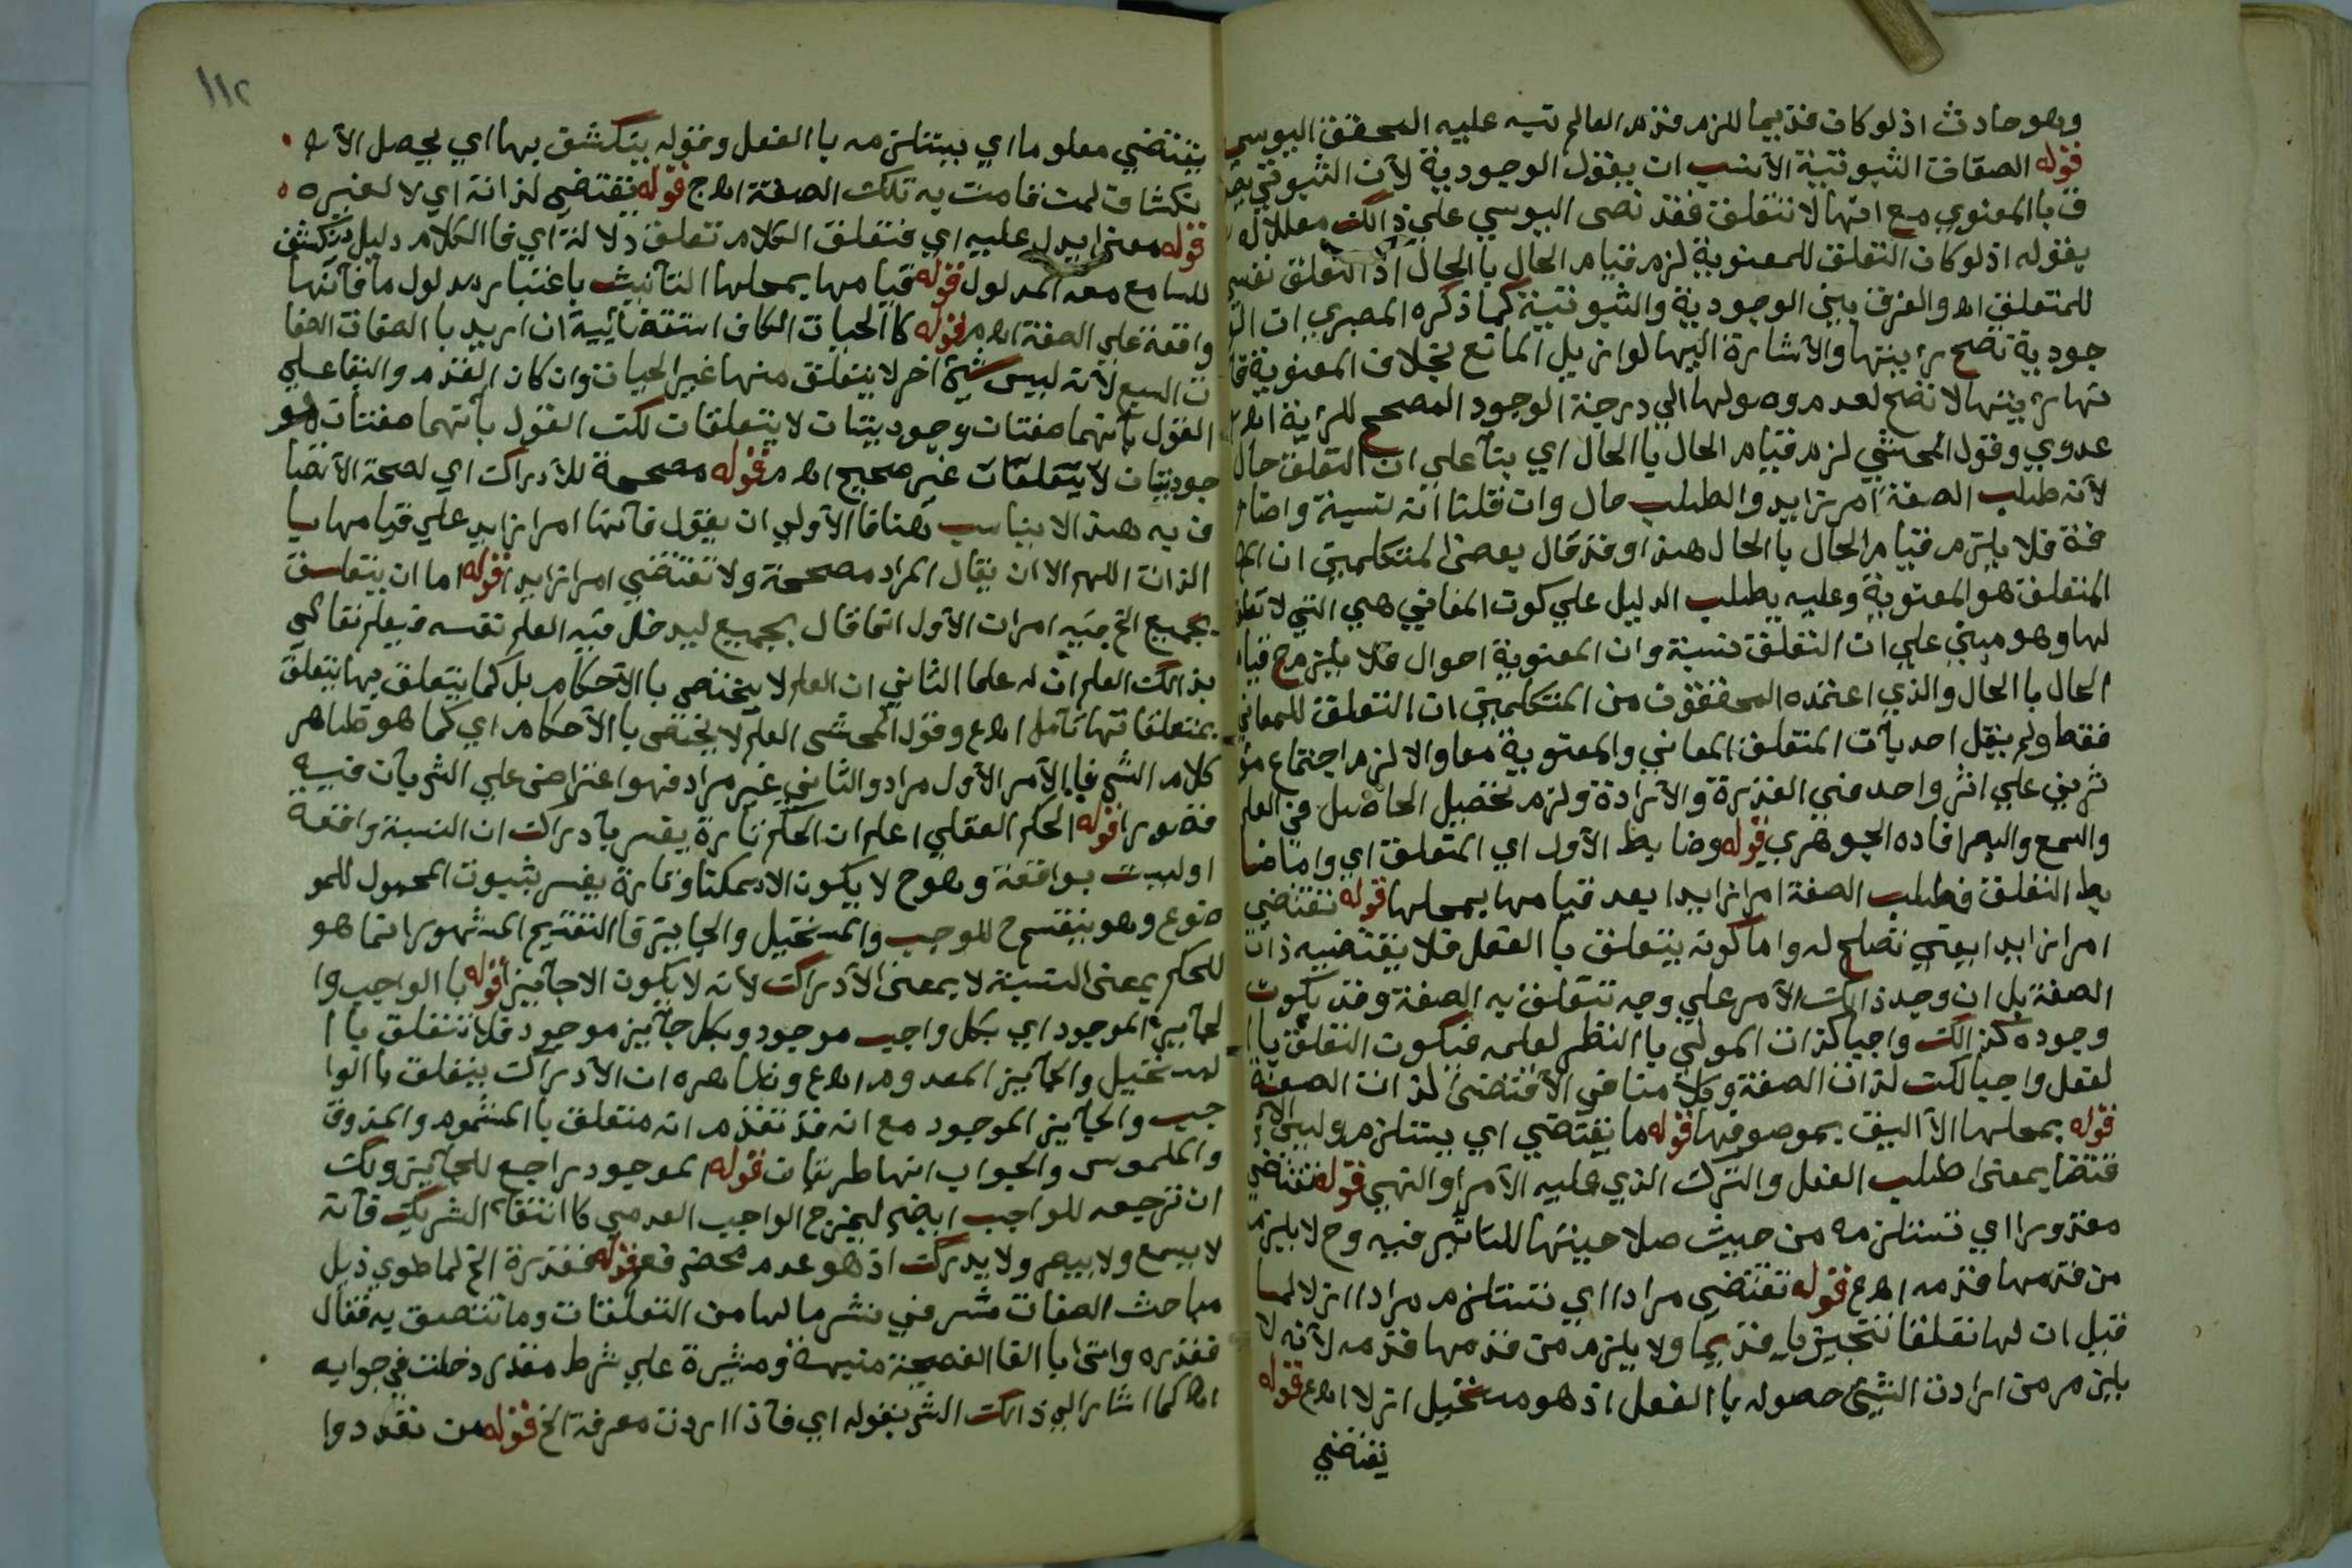 وهو حادث اذ لو كان قديما للزم قدم العالم نبه عليه المحقق اليوسي
قوله الصفات الثبوتية الأنسب ان يقول الوجودية لأن الثبوتي
ف با المعنوي مع انها لا تتعلق فقد نص اليوسي علي ذالك معللا له
بقوله اذ لو كان التعلق للمعنوية لزم قيام الحال با الحال اذ التعلق نفسي
للمتعلق اه والفرق بين الوجودية والثبوتية كما ذكره المصري ان
جودية تصح رأيتها والأشارة اليها لو ازيل المانع بخلاف المعنوية
نها رأيتها لا تصح لعدم وصولها الي درجة الوجود المصحح للرأية اه
عدوي وقول المحشي لزم قيام الحال با الحال اي بنآ علي ان التعلق حال
لأنه طلب الصفة امر زايد والطلب حال وان قلنا انه نسبة واضا
فة فلا يلزم قيام الحال با الحال هذا وقد قال بعض المتكلمين ان
المتعلق هو المعنوية وعليه يطلب الدليل علي كون المعاني هي التي لا تعلق
لها وهو مبني علي ان التعلق نسبة وان المعنوية احوال فلا يلزم ح قيام
الحال با الحال والذي اعتمده المحققون من المتكلمين ان التعلق للمعاني
فقط ولم يقل احد بأن المتعلق المعاني والمعنوية معا والا لزم اجتماع مؤ
ثرين علي اثر واحد في القدرة والأرادة ولزم تحصيل الحاصل في العلم
والسمع والبصر افاده الجوهري قوله وضابط الأول اي المتعلق اي واما ضا
بط التعلق فطلب الصفة امرا زايدا بعد قيامها بمحلها قوله تقتضي
امرا زايدا يعني تصلح له واما كونه يتعلق با الفعل فلا يقتضيه ذات
الصفة بل ان وجد ذالك الأمر علي وجه تتعلق به الصفة وقد يكون
وجوده كذالك واجبا كذات المولي با النظر لعلمه فيكون التعلق با ا
لفعل واجبا لكن لذات الصفة وكلا منا في الأقتضي لذات الصفة
قوله بمحلها الأليق بموصوفها قوله ما يقتضي اي يستلزم وليس الأ
قتضا بمعني طلب الفعل والترك الذي عليه الأمر او النهي قوله تقتضي
مقدورا اي تستلزمه من حيث صلاحيتها للتاثير فيه وح لا يلزم
من قدمها قدمه اه ع قوله تقتضي مرادا اي تستلزم مرادا ازلا لما
قيل ان لها تعلقا تنجيزيا قديما ولا يلزم من قدمها قدمه لأنه لا
يلزم من ارادت الشيئ حصوله با الفعل اذ هو مستحيل ازلا اه ع قوله
يقتضي
١١٢
يقتضي معلوما اي يستلزمه با الفعل وقوله ينكشف بها اي يحصل الأ
نكشاف لمن قامت به تلك الصفة اه ج قوله يقتضي لذاته اي لا لغيره
قوله معني يدل عليه اي فتعلق الكلام تعلق دلالة اي فا الكلام دليل ينكشف
للسامع معه المدلول قوله قيامها بمحلها التأنيث باعتبار مدلول ما فأنها
واقعة علي الصفة اه م قوله كا الحيات الكاف استقصائية ان اريد با الصفات الصفا
ت السبع لأنه ليس شيئ اخر لا يتعلق منها غير الحيات وان كان القدم والبقا علي
القول بأنهما صفتان وجوديتان لا يتعلقان لكن القول بأنهما صفتان و
جوديتان لا يتعلقان غير صحيح اه م قوله مصححة للأدراك اي لصحة الأتصا
ف به هذا لا يناسب هنا فا الأولي ان يقول فأنها امر زايد علي قيامها با
الذات اللهم الا ان يقال المراد مصححة ولا تقتضي امرا زايدا قوله اما ان يتعلق
بجميع الخ فيه امران الأول انما قال بجميع ليدخل فيه العلم نفسه فيعلم تعالي
بذالك العلم ان له علما الثاني ان العلم لا يختص با الأحكام بل كما يتعلق بها يتعلق
بمتعلقاتها تأمل اه ع وقول المحشي العلم لا يختص با الأحكام اي كما هو ظاهر
كلام الش فا الأمر الأول مراد والثاني غير مراد فهو اعتراض علي الش بأن فيه
قصورا قوله الحكم العقلي اعلم ان الحكم تارة يفسر بأدراك ان النسبة واقعة
اوليست بواقعة وهو ح لا يكون الا ممكنا وتارة يفسر بثبوت المحمول للمو
ضوع وهو ينقسم ح للوجب والمستحيل والجايز فا التقسيم المشهور انما هو
للحكم بمعني النسبة لا بمعني الأدراك لأنه لا يكون الا جآيزا قوله با الواجب وا
لجآيز الموجود اي بكل واجب موجود وبكل جآيز موجود فلا تتعلق با ا
لمستحيل والجآيز المعدوم اه ع وظاهره ان الأدراك يتعلق با الوا
جب والجآيز الموجود مع انه قد تقدم انه متعلق با المشموم والمذوق
والملموس والجواب انها طريقان قوله الموجود راجع للجآيز ولك
ان ترجعه للواجب ايض ليخرج الواجب العدمي كا انتفآء الشريك فأنه
لا يسمع ولا يبصر ولا يدرك اذ هو عدم محض قوله فقدرة الخ لما طوي ذيل
مباحث الصفات شرع في نشر ما لها من التعلقات وما تتصف به فقال
فقدره واتي با الفا الفصيحة منبهة ومشيرة علي شرط مقدر دخلت في جوابه
اه كما اشار الي ذالك الش بقوله اي فأذا اردت معرفة الخ قوله من تعددوا